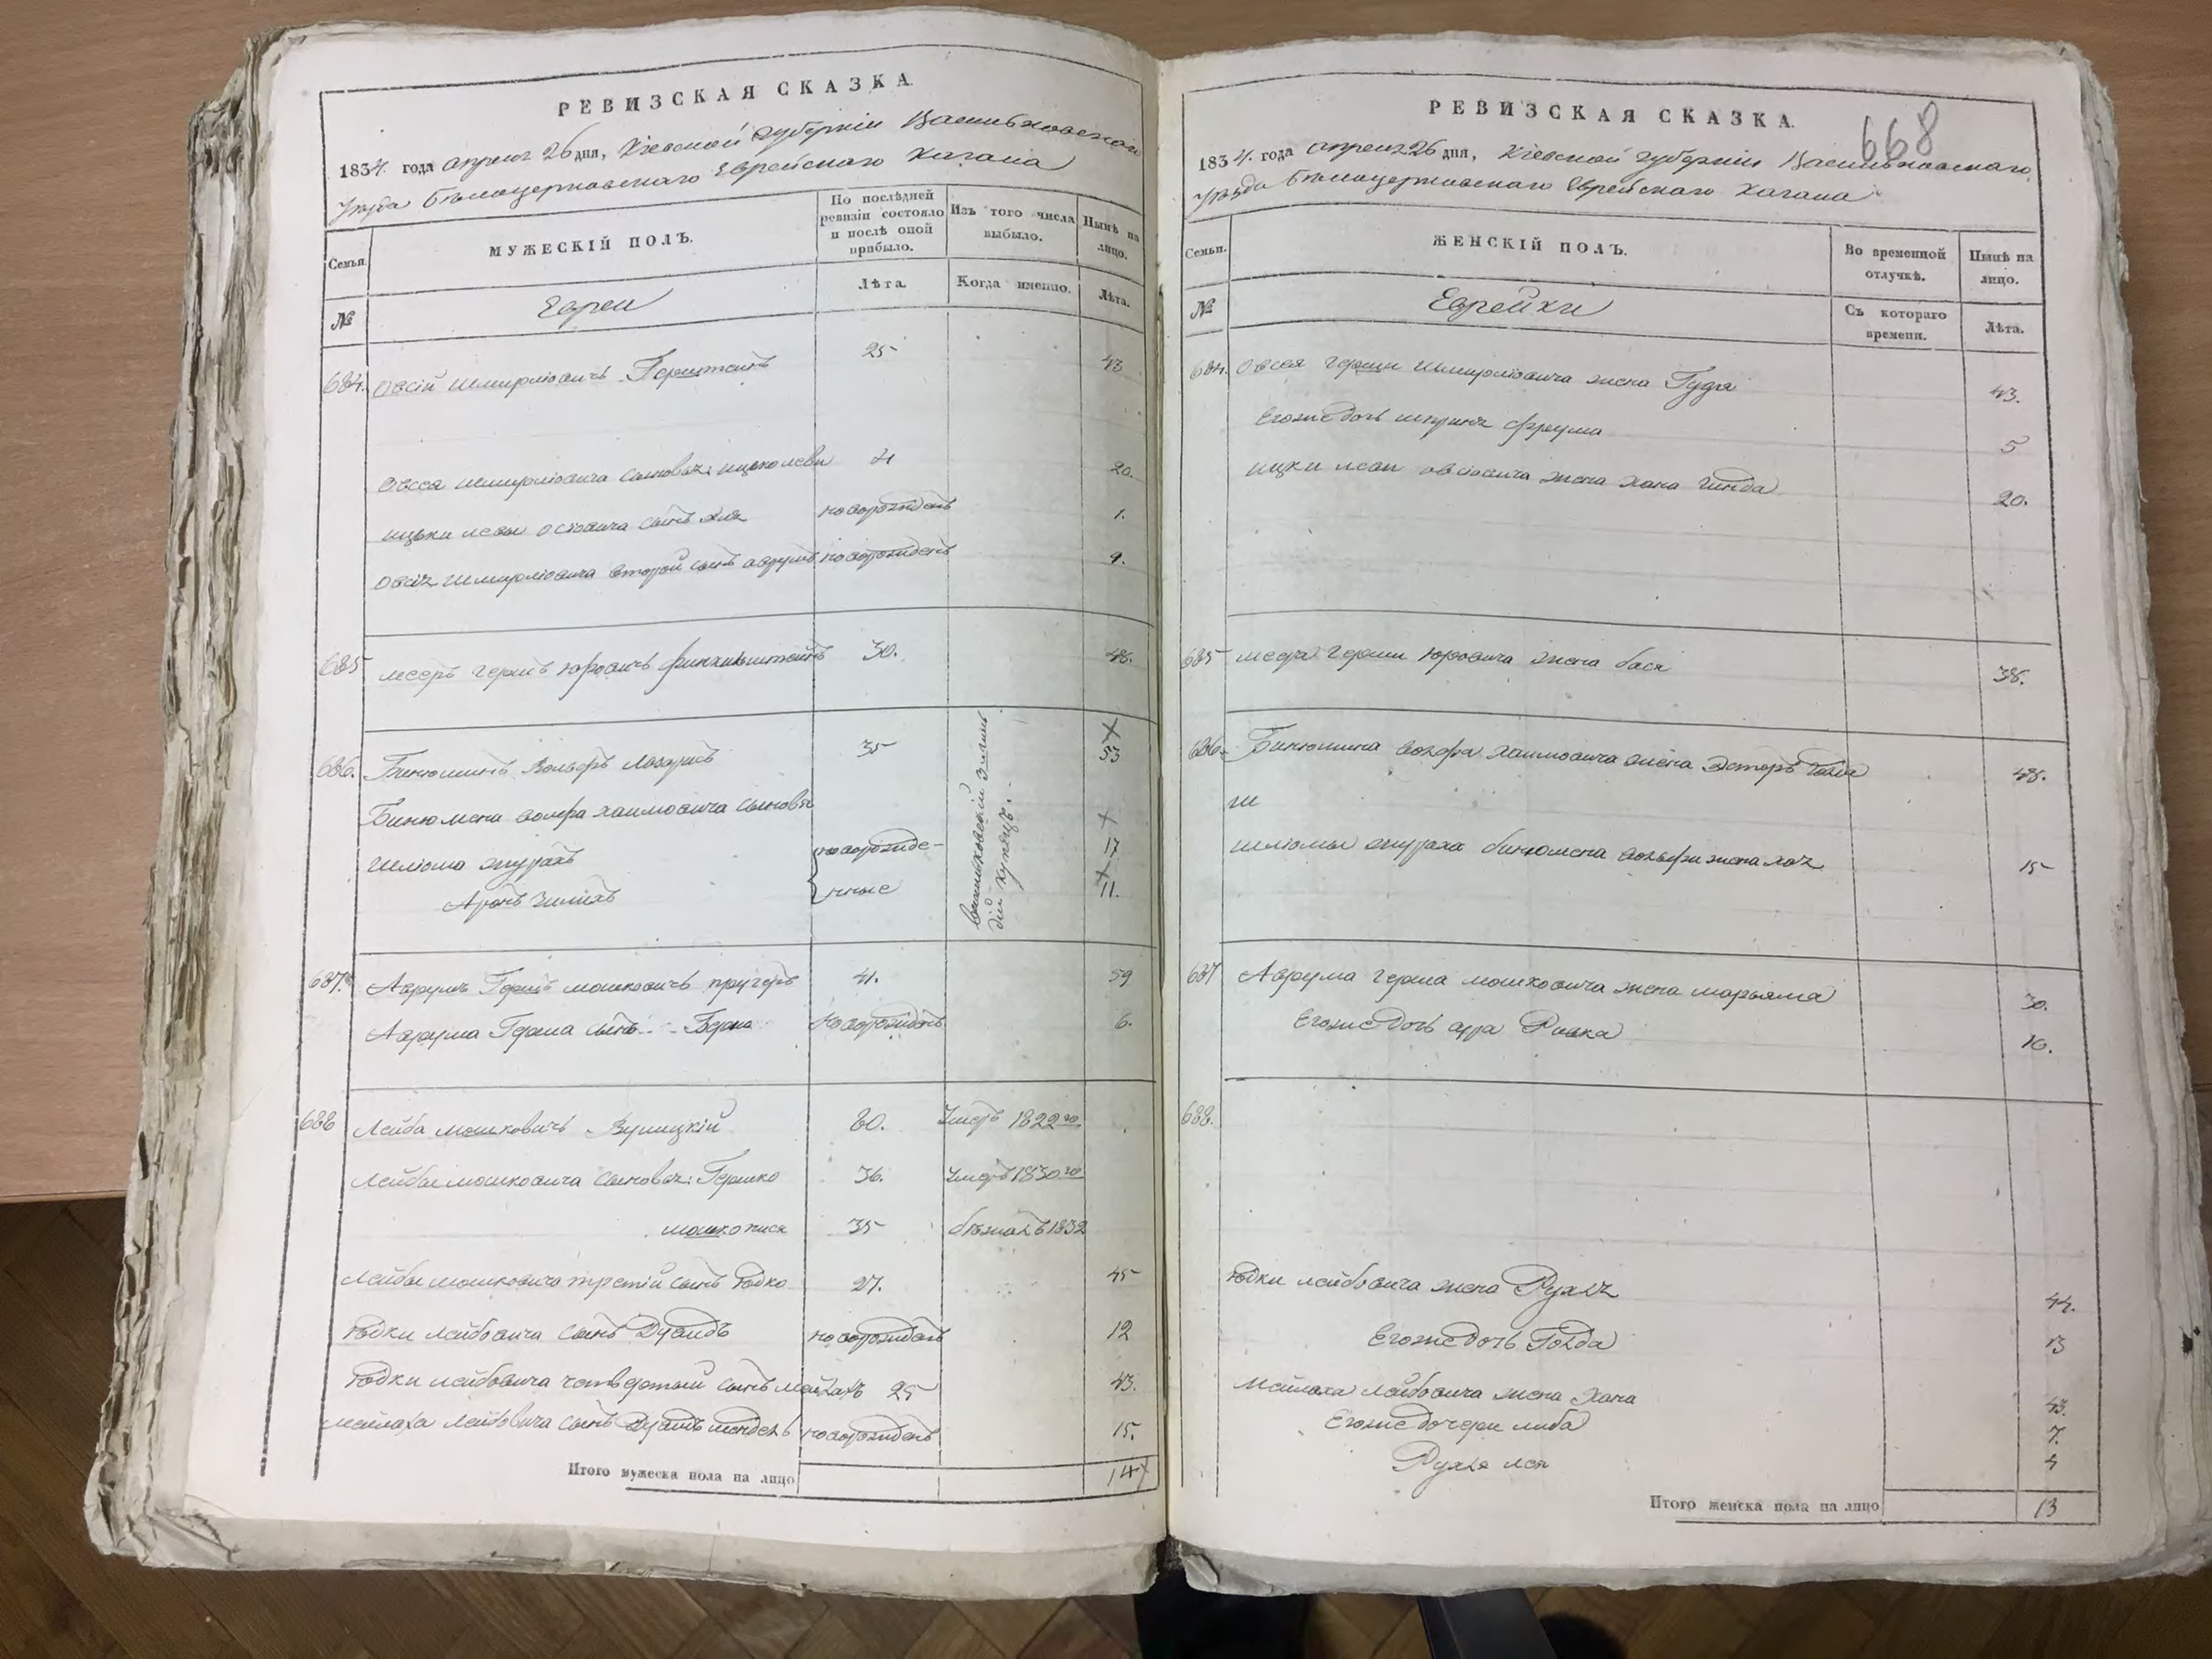 РЕВИЗСКАЯ СКАЗКА.
1834. года апреля 26 дня, Кіевской губерніи Васильковскаго
Уезда Бѣлоцерковскаго Еврейскаго Кагала
Семьи.
МУЖЕСКІЙ ПОЛЪ.
По послѣдней ревизіи состояло и послѣ оной прибыло.
Изъ того числа выбыло.
Нынѣ на лицо.
№
Евреи
Лѣта.
Когда именно.
Лѣта.
684. Овсій Шмирліовичъ Герштенъ 25 43
Овсея Шмирліовича сыновья: Ицко Леви 4 20.
Ицьки Левы сынъ новорожденъ 1.
Овсія Шмирліовича второй сынъ Аврумъ новорожденъ 9.
685 Мееръ Гершъ 30. 48.
686. Бинюминъ Вольфъ 35 53
Бинюмена Волфа Хаимовича сыновья
Шліома 17
Аронъ 11.
новорожде-
нные
купецъ.
687. Аврумъ Гершъ Мошковичъ 41. 59
Аврума Герша сынъ Берко новорожденъ 6.
688 Лейба Мошковичъ 80. Умеръ 1822 го.
Лейбы Мошковича сыновья: Гершко 36. Умеръ 1830 го
Мошко 35 бѣжалъ 1832
Лейбы Мошковича третій сынъ Юдко 27. 45
Юдки Лейбовича сынъ Дувидъ новорожденъ 12
Юдки Лейбовича четвертый сынъ Мейлахъ 25 43.
Мейлаха Лейбовича сынъ Дувидъ Мендель новорожденъ 15.
Итого мужеска пола на лицо 14
РЕВИЗСКАЯ СКАЗКА.
668
1834. года апреля 26 дня, Кіевской губерніи Васильковскаго
Уѣзда Бѣлоцерковскаго Еврейскаго Кагала
Семьи.
ЖЕНСКІЙ ПОЛЪ.
Во временной отлучкѣ.
Нынѣ на лицо.
№
Еврейки
Съ котораго времени.
Лѣта.
684. Овсея Шмирліовича жена Гудя 43.
Егоже дочь Фрума 5
Ицки Леви Овсіовича жена Хана Гинда 20.
685 Меера Герши жена Бася 38.
686. Бинюмина Волфа Хаимовича жена Эстеръ 48.
ш
Шліомы Бинюмена Вольфа жена 15
687 Аврума Герша Мошковича жена Марьяма 30.
Егоже дочь Ривка 10.
688.
Юдки Лейбовича жена Рухля 44.
Егоже дочь Голда 13
Мейлаха Лейбовича жена Хана 43.
Егоже дочери Либа 7.
Рухля Лея 4
Итого женска пола на лицо 13